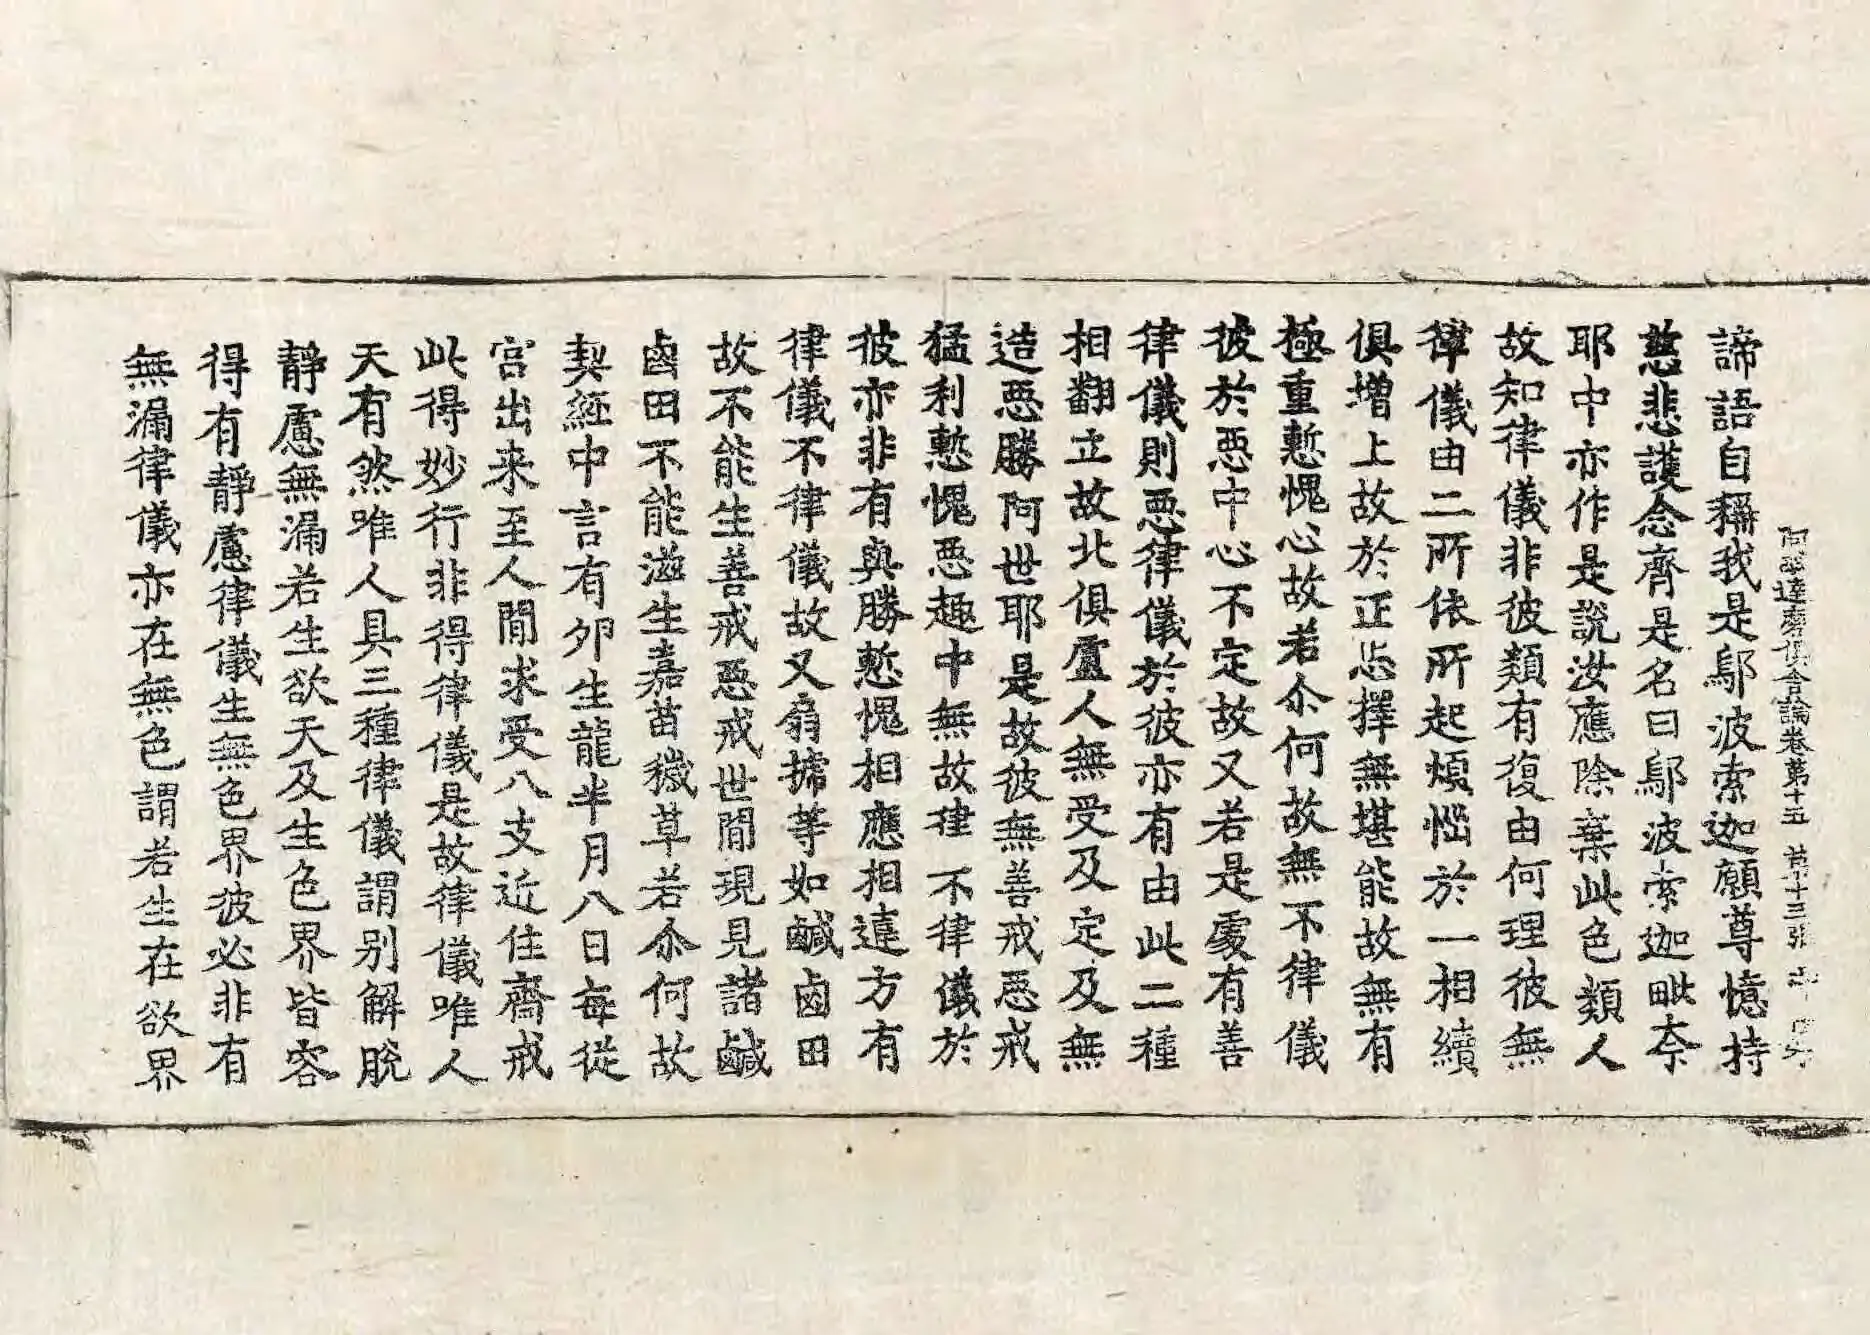 阿毗達磨俱舍論卷第十五 第十三張
諦語自稱我是鄔波索迦願尊憶持
慈悲護念齊是名曰鄔波索迦毗奈
耶中亦作是說汝應除棄此色類人
故知律儀非彼類有復由何理彼無
律儀由二所依所起煩惱於一相續
俱增上故於正思擇無堪能故無有
極重慙愧心故若尒何故無不律儀
彼於惡中心不定故又若是處有善
律儀則惡律儀於彼亦有由此二種
相翻立故北俱盧人無受及定及無
造惡勝阿世耶是故彼無善戒惡戒
猛利慙愧惡趣中無故律不律儀於
彼亦非有與勝慙愧相應相違方有
律儀不律儀故又扇搋等如鹹鹵田
故不能生善戒惡戒世間現見諸鹹
鹵田不能滋生嘉苗穢草若尒何故
契經中言有卵生龍半月八日每從
宮出來至人間求受八支近住齋戒
此得妙行非得律儀是故律儀唯人
天有然唯人具三種律儀謂別解脫
靜慮無漏若生欲天及生色界皆容
得有靜慮律儀生無色界彼必非有
無漏律儀亦在無色謂若生在欲界